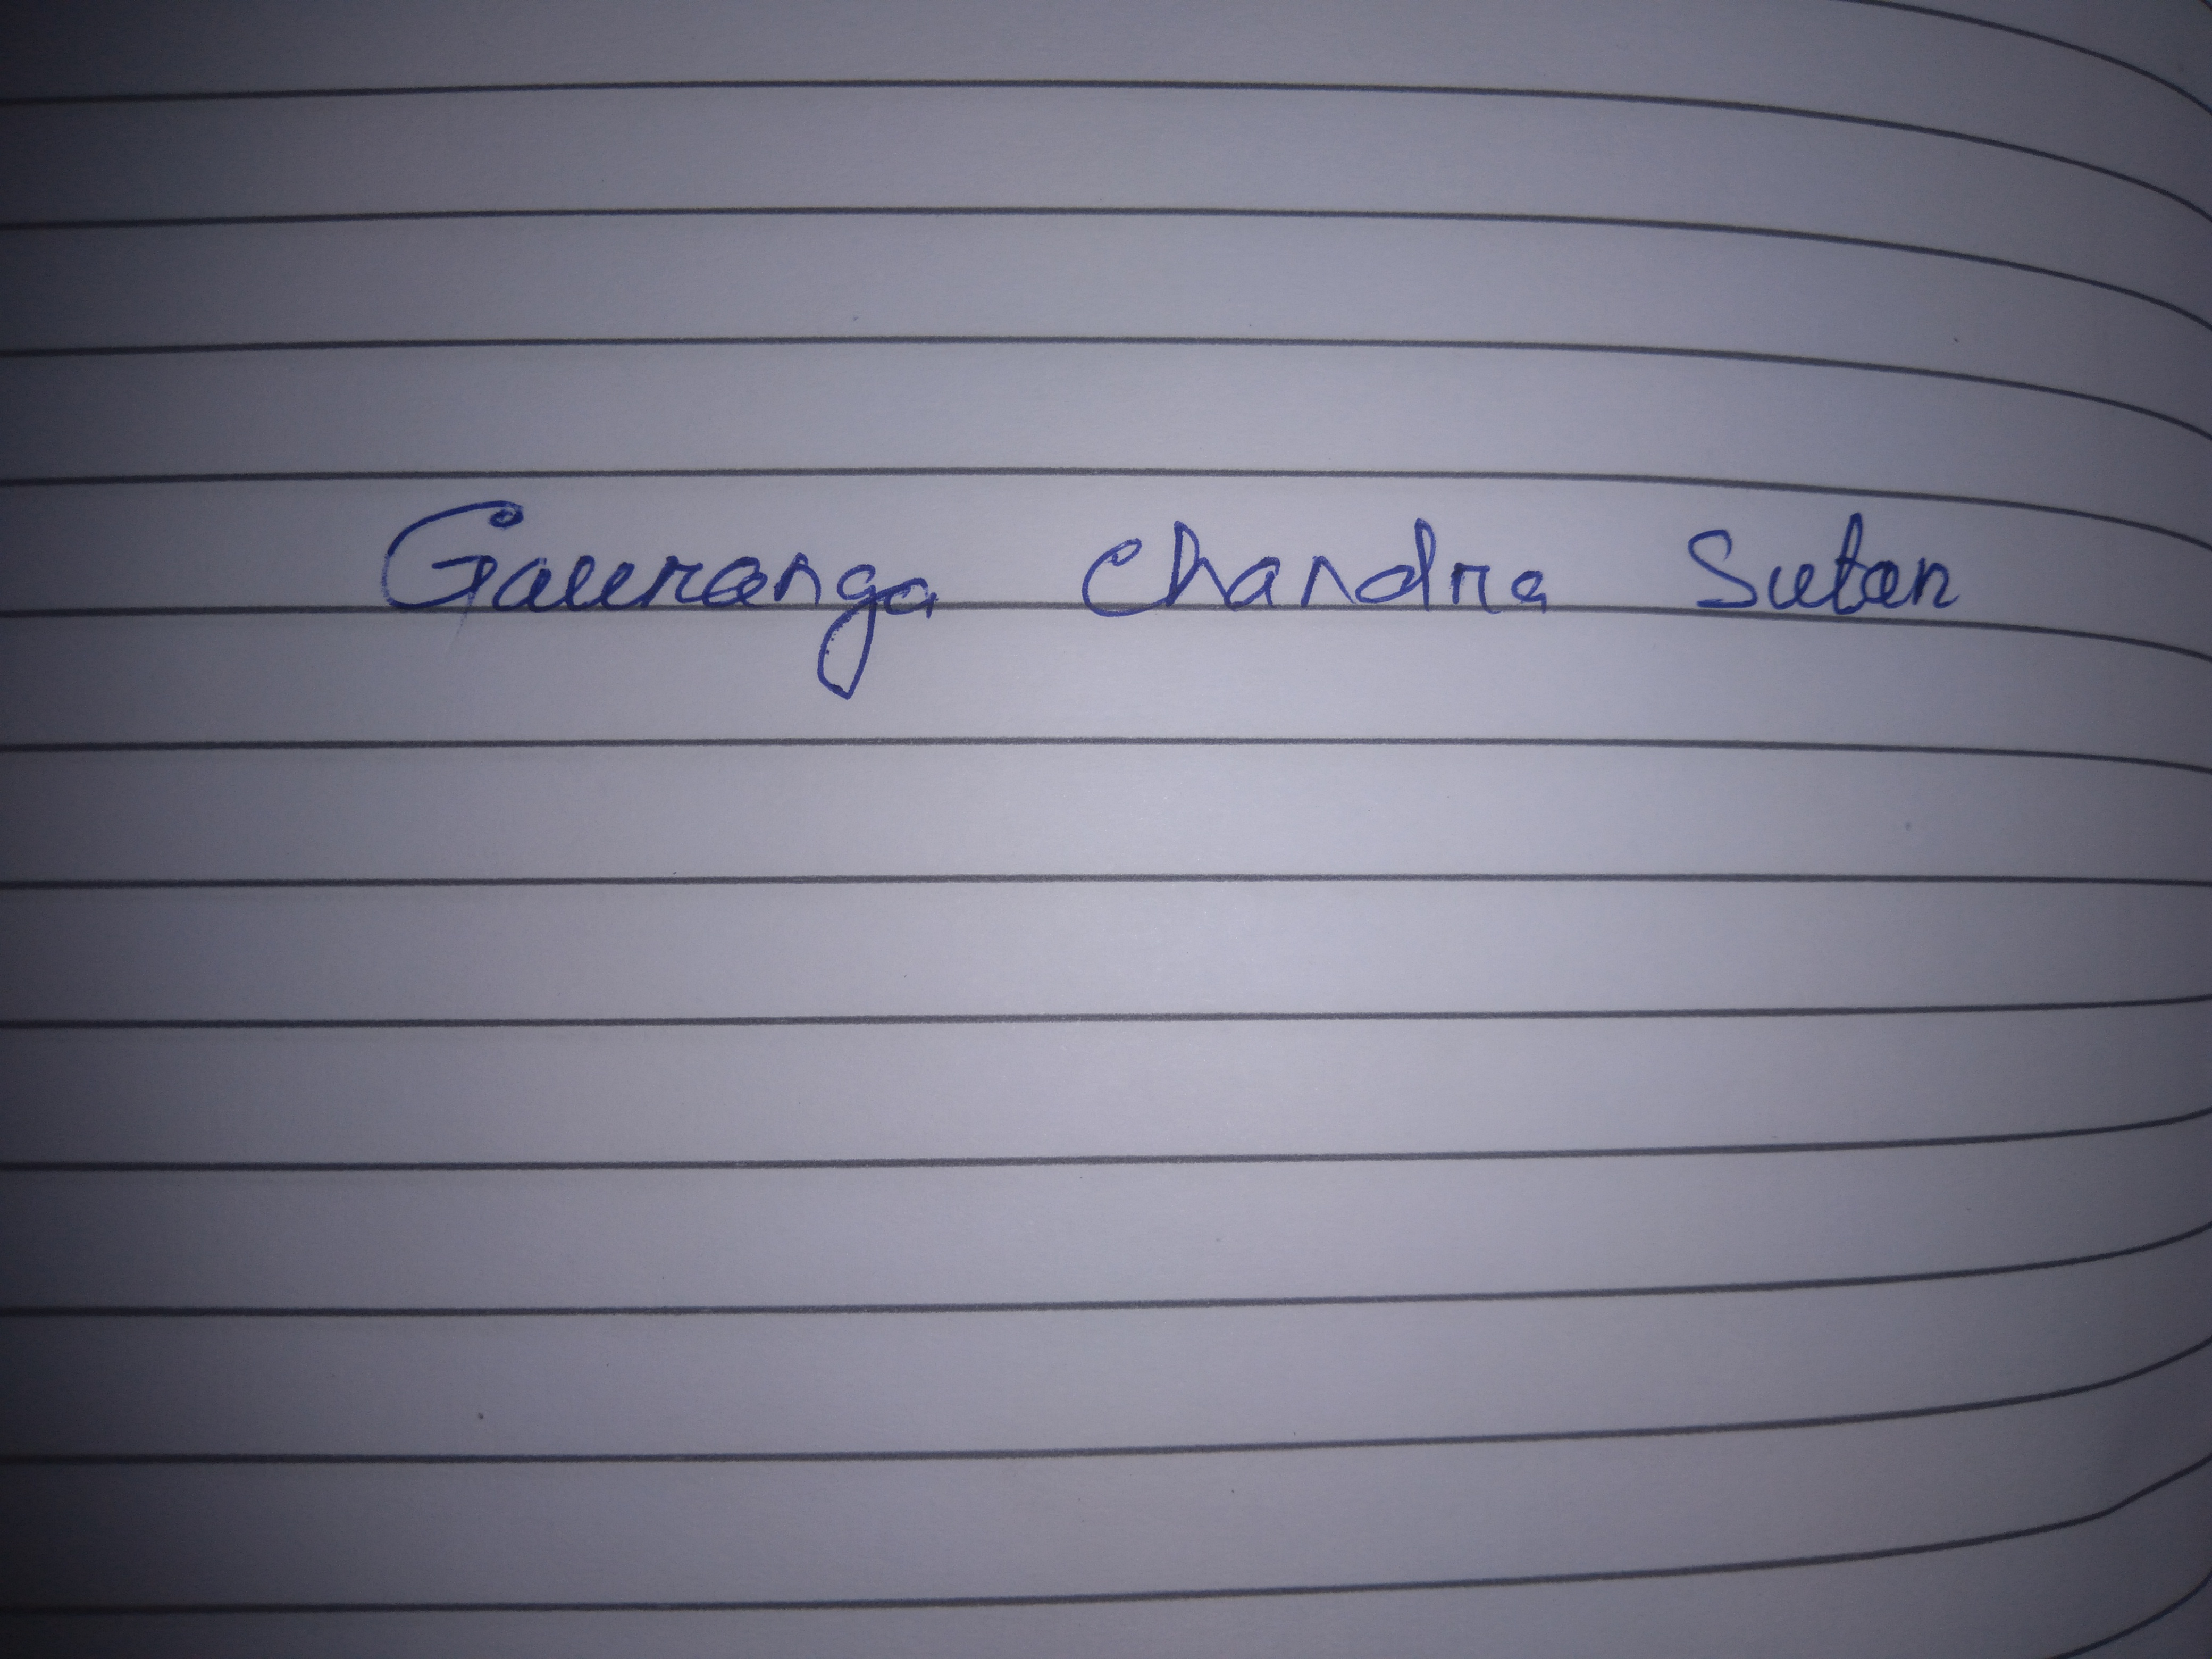 Gauranga Chandra Sutar